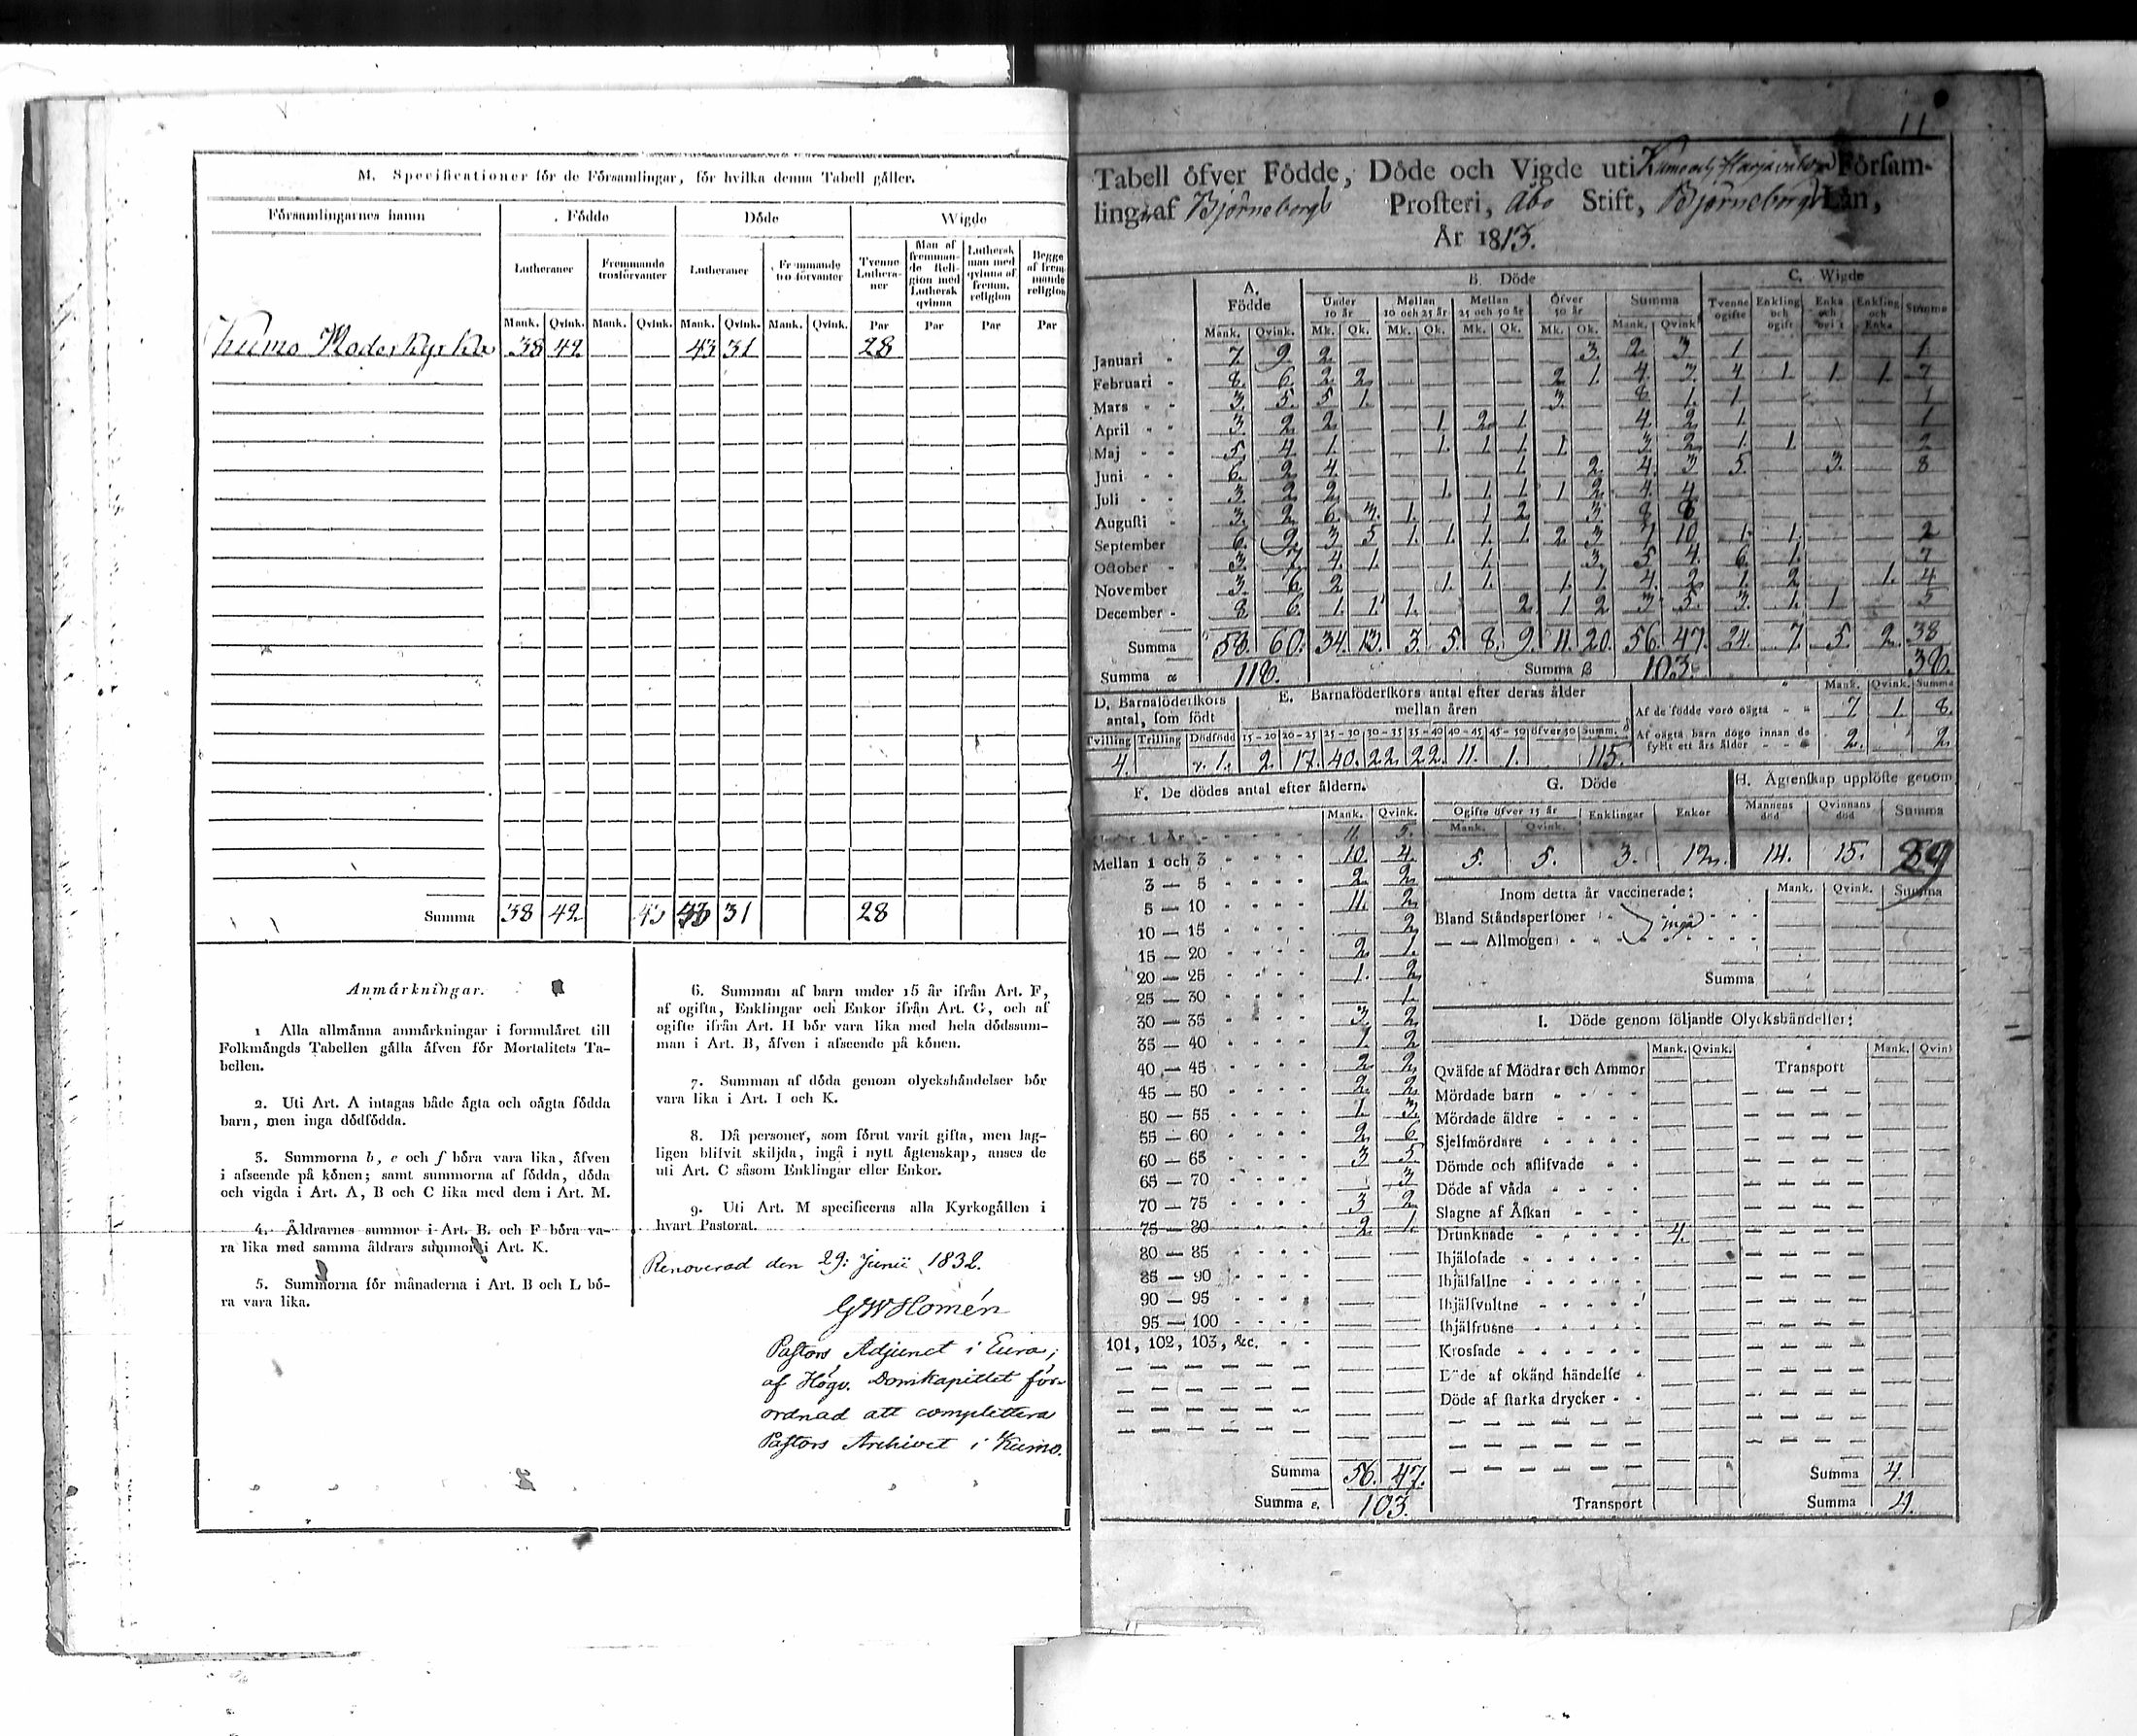 M. Specificationer för de Församlingar, för hvilka denna Tabell gäller.
Församlingarnes namn Födde Döde Wigde
Lutheraner Fremmande trosförvanter Lutheraner Fremmande trosförvanter Tvenne Lutheraner Man af fremmande Religion med Luthersk qvinna Luthersk man med qvinna af fremm. religion Begge af fremmande religion
Mank. Qvink. Mank. Qvink. Mank. Qvink. Mank. Qvink. Par Par Par Par
Kumo Moderkyrka 38 42 43 31 28
Summa 38 42 43 31 28
Anmärkningar.
1 Alla allmänna anmärkningar i formuläret till
Folkmängds Tabellen gälla äfven för Mortalitets Ta-
bellen.
2. Uti Art. A intagas både ägta och oägta födda
barn, men inga dödfödda.
3. Summorna b, e och f böra vara lika, äfven
i afseende på könen; samt summorna af födda, döda
och vigda i Art. A, B och C lika med dem i Art. M.
4. Åldrarnes summor i Art. B. och F böra va-
ra lika med samma åldrars summor i Art. K.
5. Summorna för månaderna i Art. B och L bö-
ra vara lika.
6. Summan af barn under 15 år ifrån Art. F,
af ogifta, Enklingar och Enkor ifrån Art. G, och af
ogifte ifrån Art. H bör vara lika med hela dödssum-
man i Art. B, äfven i afseende på könen.
7. Summan af döda genom olyckshändelser bör
vara lika i Art. I och K.
8. Då personer, som förut varit gifta, men lag-
ligen blifvit skiljda, ingå i nytt ägtenskap, anses de
uti Art. C såsom Enklingar eller Enkor.
9. Uti Art. M specificeras alla Kyrkogällen i
hvart Pastorat.
Renoverad den 29: Junii 1832.
GWHomén
Pastors Adjunct i Eura,
af Högv. Domkapitlet för-
ordnad att complettera
Pastors Archivet i Kumo.
11
Tabell öfver Födde, Döde och Vigde uti Kumo och Harjavalda Församling
af Björneborgs Prosteri, Åbo Stift, Björneborgs Län,
År 1813.
A. Födde B. Döde C. Wigde
Under 10 år Mellan 10 och 25 år Mellan 25 och 50 år Öfver 50 år Summa Tvenne ogifte Enkling och ogift Enka och Enkling och Enka Summa
Mank. Qvink. Mk. Qk. Mk. Qk. Mk. Qk. Mk. Qk. Mank. Qvink.
Januari 7. 9. 2. 3. 2. 3. 1. 1.
Februari 8. 6. 2. 2. 2. 1. 4. 3. 4 1. 1. 1. 7
Mars 3. 5. 5. 1. 3. 8. 1. 1. 1
April 3 2 2 1. 2 1. 4. 2 1. 1
Maj 5. 4. 1. 1. 1. 1. 1 3 2 1. 1 2
Juni 6. 2 4. 1. 2. 4. 3 5. 3. 8
Juli 3. 2 2 1. 1. 1 1 2. 4. 4
Augusti 3. 2. 6. 3. 1. 1 2 3 8 8
September 6. 9. 3 5 1. 1. 1. 1. 2 3 10 1. 1. 2
October 3. 7. 4. 1. 1. 3. 5 4. 6. 1. 7
November 3. 6. 2 1 1. 1. 1. 4. 2 1. 2 1. 4
December 8 6. 1. 1. 1. 2. 1 2 3 5. 3. 1. 1 5
Summa 58. 60. 34. 13. 3. 5. 8. 9. 11. 20. 56. 47. 24. 7. 5 2. 38
Summa α 118. Summa β 103. 38.
D. Barnaföderskors antal, som födt
Tvilling Trilling Dödfödd
4. 1.
E. Barnaföderskors antal efter deras ålder mellan åren
15-20 20-25 25-30 30-35 35-40 40-45 45-50 öfver 50 Summ. δ
2. 17. 40. 22. 22. 11. 1. 115.
Mank. Qvink. Summa
Af de födde voro oägta 7 1. 8.
Af oägta barn dögo innan de fyllt ett års ålder 2. 2.
F. De dödes antal efter åldern.
Mank. Qvink.
Under 1 År 11. 5.
Mellan 1 och 3 10. 4.
3 — 5 2. 2
5 — 10 11. 2
10 — 15 2
15 — 20 2 1.
20 — 25 1. 2
25 — 30 1.
30 — 35 3. 2
35 — 40 1 2
40 — 45 2. 2
45 — 50 2 2
50 — 55 1. 3.
55 — 60 2 6
60 — 65 3 5
65 — 70 3
70 — 75 3 2
75 — 80 2 1.
80 — 85
85 — 90
90 — 95
95 — 100
101, 102, 103, &c.
Summa 56. 47.
Summa ε. 103.
G. Döde
Ogifte öfver 15 år Enklingar Enkor
Mank. Qvink.
5. 5. 3. 12.
H. Ägtenskap upplöste genom
Mannens död Qvinnans död Summa
14. 15. 29
Inom detta år vaccinerade: Mank. Qvink. Summa
Bland Ståndspersoner
— — Allmogen inga
Summa
I. Döde genom följande Olyckshändelser:
Mank. Qvink. Mank. Qvink
Qväfde af Mödrar och Ammor Transport
Mördade barn
Mördade äldre
Sjelfmördare
Dömde och aflifvade
Döde af våda
Slagne af Åskan
Drunknade 4.
Ihjälofade
Ihjälfallne
Ihjälsvultne
Ihjälfrusne
Krossade
Döde af okänd händelse
Döde af starka drycker
Summa 4.
Transport Summa 4.